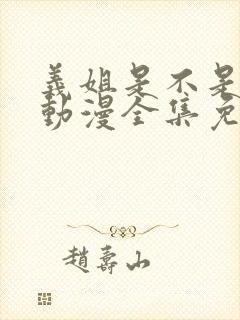 義姐是不是
動漫全集免
趙壽山